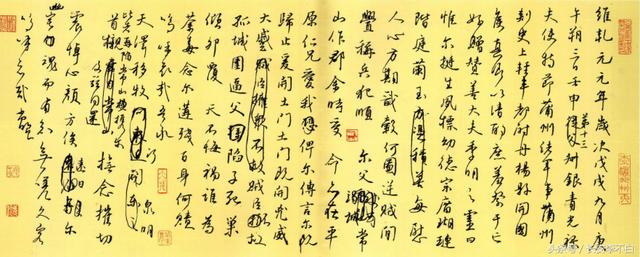 維乾元元年歲次戊戌九月庚
午朔三日壬申第十三叔銀青光祿
夫使持節蒲州諸軍事蒲州
刺史上輕車都尉丹楊縣開國
侯真卿以清酌庶羞祭于亡
姪贈贊善大夫季明之靈曰
惟爾挺生夙標幼德宗廟瑚璉
階庭蘭玉每慰
人心方期戩穀何圖逆賊閒
釁稱兵犯順爾父常
山作郡余時受命亦在平
原仁兄愛我俾爾傳言爾既
歸止爰開土門土門既開凶威
大蹙賊臣不救
孤城圍逼父陷子死巢
傾卵覆天不悔禍誰為
荼毒念爾遘殘百身何贖
嗚呼哀哉吾承
天澤移牧河關泉明
比者再陷常山攜爾
首櫬及茲同還撫念摧切
震悼心顏方俟遠日爾
幽宅魂而有知無嗟久客
嗚呼哀哉尚饗